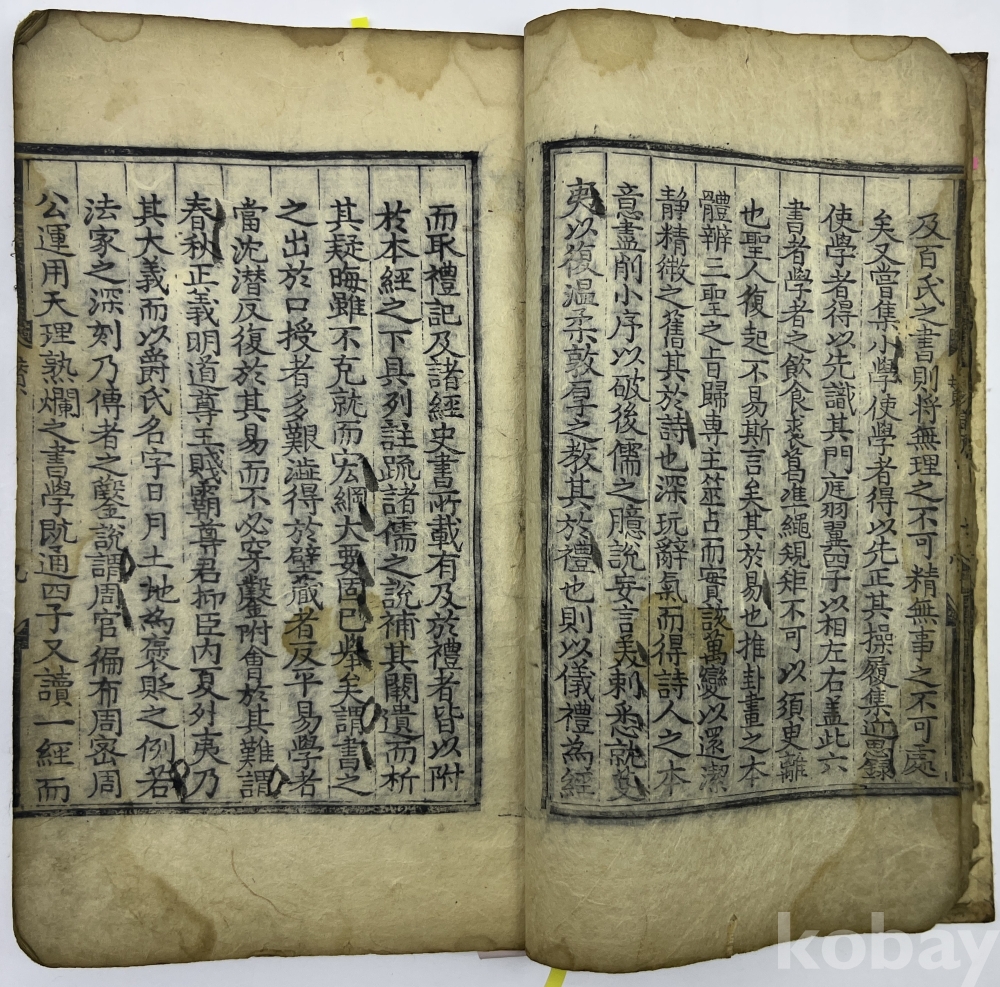 及百氏之書則將無理之不可精無事之不可處
矣又嘗集小學使學者得以先正其操履集近思錄
使學者得以先識其門庭羽翼四子以相左右盖此六
書者學者之飮食裘葛准繩規矩不可以須臾離
也聖人復起不易斯言矣其於易也推卦畫之本
體辨三聖之旨歸專主筮占而實該萬變以還潔
靜精微之舊其於詩也深玩辭氣而得詩人之本
意盡削小序以破後儒之臆說妄言美刺悉就芟
夷以復溫柔敦厚之敎其於禮也則以儀禮為經
而取禮記及諸經史書所載有及於禮者皆以附
於本經之下具列註疏諸儒之說補其闕遺而析
其疑晦雖不克就而宏綱大要固已擧矣謂書之
之出於口授者多艱澁得於壁藏者反平易學者
當沈潜反復於其易而不必穿鑿附會於其難謂
春秋正義明道尊王賤霸尊君抑臣內夏外夷乃
其大義而以爵氏名字日月土地為褒貶之例若
法家之深刻乃傳者之鑿說謂周官徧布周密周
公運用天理熟爛之書學旣通四子又讀一經而
kobay